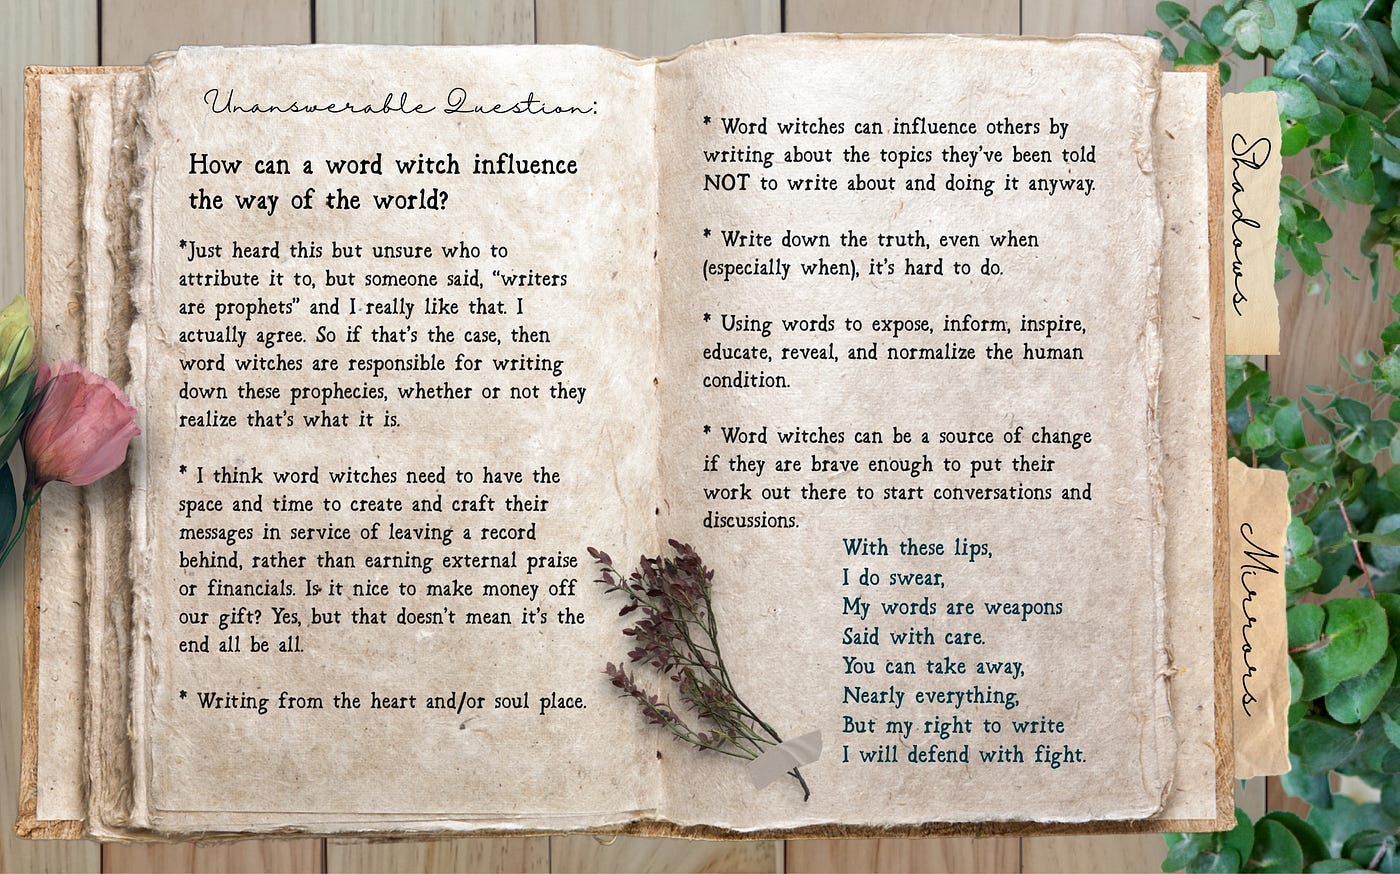 Unanswerable Question:
How can a word witch influence
the way of the world?
*Just heard this but unsure who to
attribute it to, but someone said, “writers
are prophets” and I really like that. I
actually agree. So if that’s the case, then
word witches are responsible for writing
down these prophecies, whether or not they
realize that’s what it is.
* I think word witches need to have the
space and time to create and craft their
messages in service of leaving a record
behind, rather than earning external praise
or financials. Is it nice to make money off
our gift? Yes, but that doesn’t mean it’s the
end all be all.
* Writing from the heart and/or soul place.
* Word witches can influence others by
writing about the topics they’ve been told
NOT to write about and doing it anyway.
* Write down the truth, even when
(especially when), it’s hard to do.
* Using words to expose, inform, inspire,
educate, reveal, and normalize the human
condition.
* Word witches can be a source of change
if they are brave enough to put their
work out there to start conversations and
discussions.
With these lips,
I do swear,
My words are weapons
Said with care.
You can take away,
Nearly everything,
But my right to write
I will defend with fight.
Shadows
Mirrors